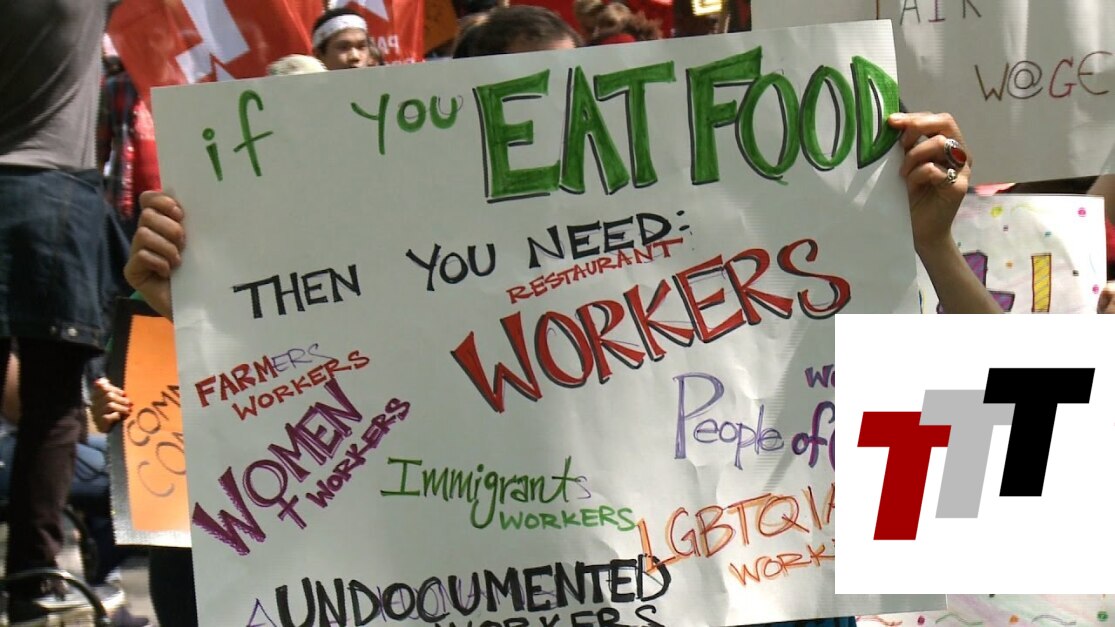 if you EAT FOOD
THEN YOU NEED:
RESTAURANT
WORKERS
FARMERS
WORKERS
WOMEN
+ WORKERS
Immigrants
WORKERS
People of
LGBTQIA
WORK
UNDOCUMENTED
WORKERS
W@GE
COMM
CO
TTT